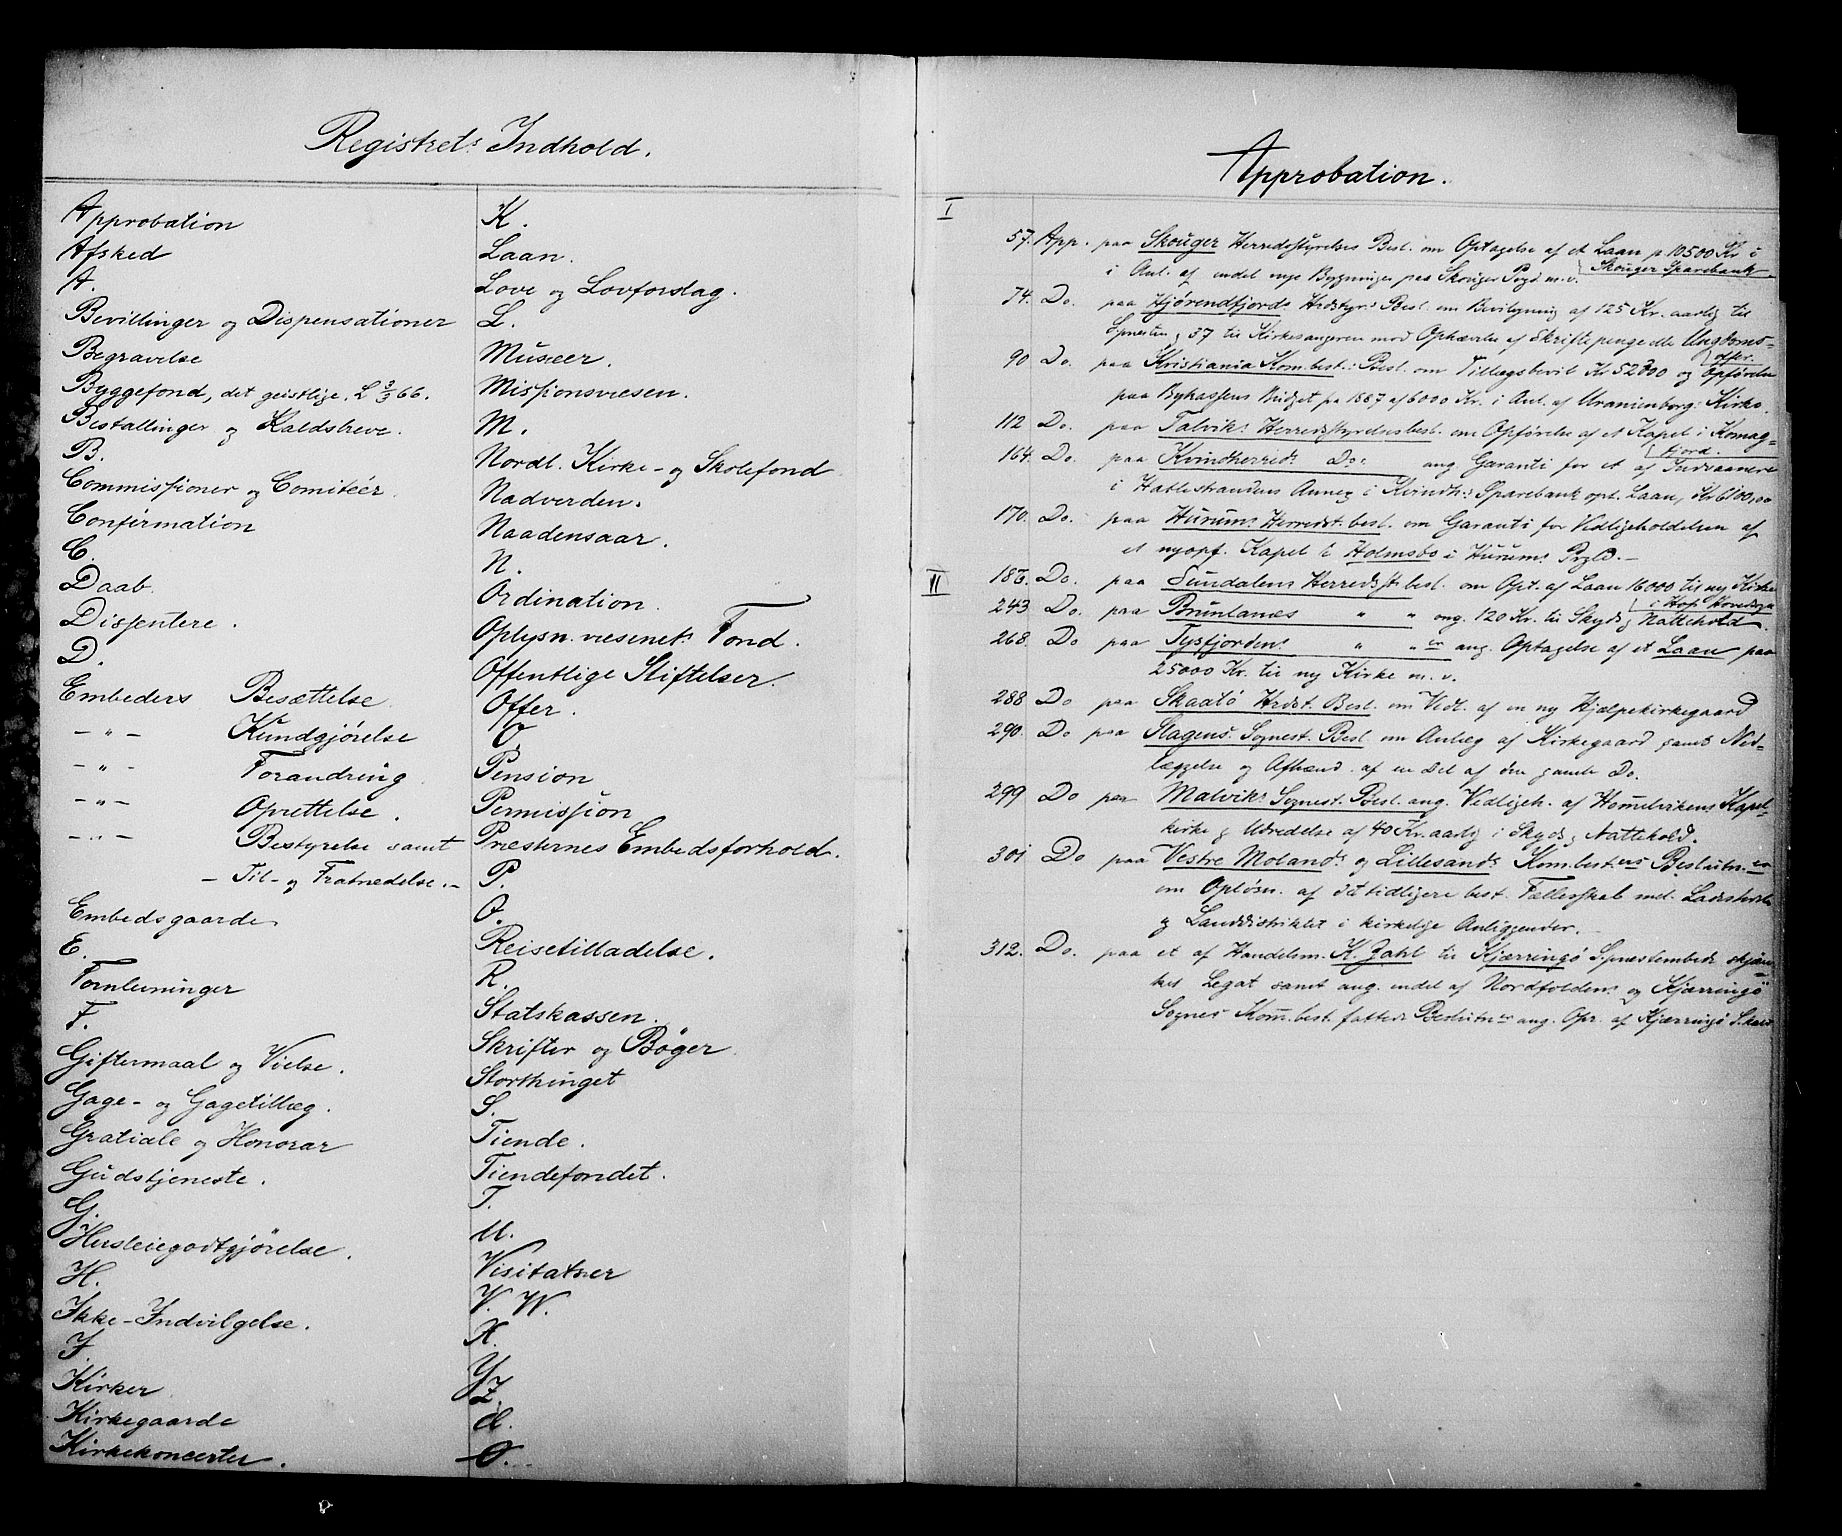 Registrets Indhold.
Approbation
Afsked
A.
Bevillinger og Dispensationer
Begravelse
Byggefond, det geistlige, L 3/3 66.
Bestallinger og Kaldsbreve.
B.
Commissjoner og Comitéer.
Confirmation
C.
Daab.
Dissentere.
D.
Embeders Besættelse
— " — Kundgjørelse
— " — Forandring
— " — Oprettelse.
— " — Bestyrelse samt
— Til- og Fratrædelse. —
Embedsgaarde
E.
Fornleuninger
F.
Giftermaal og Vielse.
Gage- og Gagetillæg.
Gratiale og Honorar
Gudstjeneste.
G.
Husleiegodtgjørelse.
H.
Ikke-Indvilgelse.
I.
Kirker
Kirkegaarde
Kirkekoncerter.
K.
Laan.
Love og Lovforslag.
L.
Museer.
Missjonsvæsen.
M.
Nordl. Kirke- og Skolefond
Nadverden.
Naadensaar.
N.
Ordination.
Oplysn.væsenets Fond.
Offentlige Stiftelser.
Offer.
O.
Pension
Permissjon
Præsternes Embedsforhold.
P.
Q.
Reisetilladelse.
R.
Statskassen.
Skrifter og Bøger
Storthinget
S.
Tiende.
Tiendefondet.
T.
U.
Visitatser
V. W.
X.
Y.
Z.
Æ.
Ø...
Approbation.
I
57. App. paa Skouger Herredsstyrelses Besl. om Optagelse af et Laan p. 10500 Kr i
i Anl. af endel nye Bygninger paa Skouger Pgd m.v. Skouger Sparebank
74. Do. paa Hjørendfjords Hrdstyr.s Besl. om Bevilgning af 125 Kr. aarlig til
Spresten og 37 til Kirkesangeren mod Ophævelse af Skriftepenge elle Ungdoms-
offer.
90 Do. paa Kristiania Kom.best.s Besl. om Tillægsbevil Kr 52300 og Opførelse
paa Bykassens Budget pa 1887 af 6000 Kr. i Anl. af Uranienborg: Kirke.
112 Do. paa Talviks Herredsstyrelsesbesl. om Opførelse af et Kapel i Komag-
fjord.
164. Do. paa Kvindherreds Do. ang Garanti for et af Indvaanere
i Hatlestrandens Annex i Kvindh.s Sparebank opt. Laan, Kr 6100,00
170. Do. paa Hurums Herredst.besl. om Garanti for Vedligeholdelsen af
et nyopf. Kapel i Holmsbo i Hurums Prgld. —
II
186. Do. paa Sundalens Herredsst.besl. om Opt. af Laan 16000 til ny Kirke
i Hofs Hovedsogn
243 Do. paa Brunlanæs " " ang. 120 Kr. til Skyds og Nattehold.
268. Do paa Tysfjordens " " er ang. Optagelse af et Laan paa
25000 Kr. til ny Kirke m.v.
288 Do paa Skaatö Hrdst. Besl. om Vedl. af en ny Hjælpekirkegaard
290. Do paa Slagens Sognest. Besl om Anlæg af Kirkegaard samt Ned-
læggelse og Afhænd. af en Del af den gamle Do.
299 Do paa Malviks Sognest. Besl. ang. Vedligeh. af Hommelvikens Kapel-
kirke og Udredelse af 40 Kr. aarlig i Skyds og Nattehold.
301 Do paa Vestre Molands og Lillesands Kom.best.ers Beslutn.er
om Opløsn. af det tidligere best. Fællesskab mel. Ladestedet
og Landdistriktet i kirkelige Anliggender. —
312. Do. paa et af Handelsm. K. Zahl til Kjærringö S.presteembede skjæn-
ket Legat samt ang. endel af Nordfoldens og Kjærringö
Sognes Kom.best. fattede Beslutn.er ang. Opr. af Kjærringö S.kald